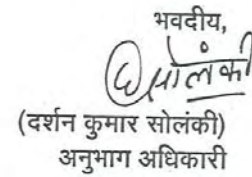 भवदीय,
सोलंकी
(दर्शन कुमार सोलंकी)
अनुभाग अधिकारी